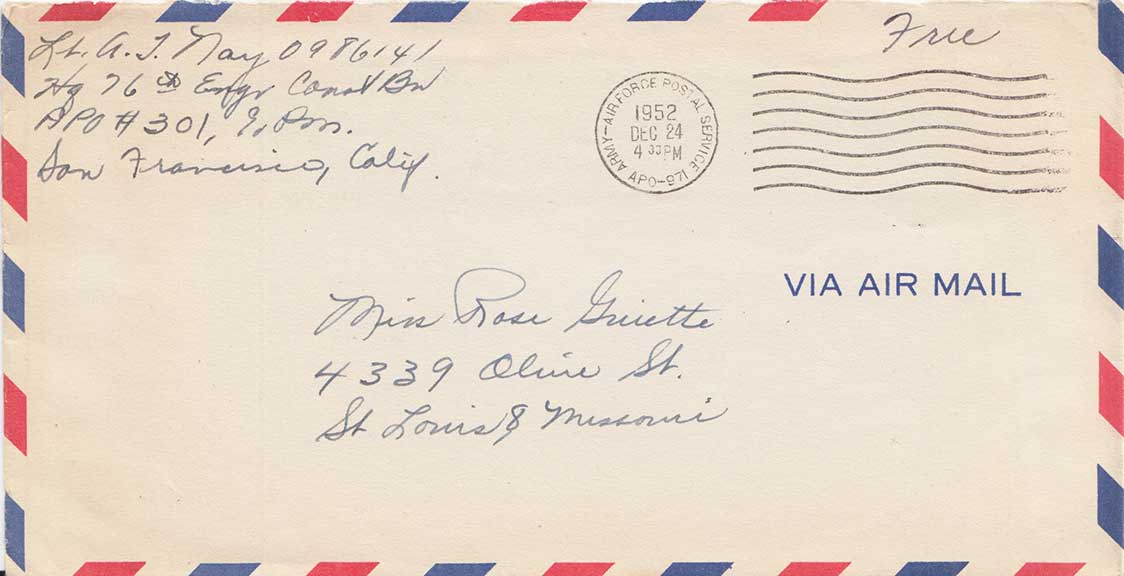 Lt. A. 0986141
Hq 76th Engr Const Bn
APO # 301, c/o Pm.
San Francisco, Calif.
Free
ARMY-AIR FORCE POSTAL SERVICE
1952
DEC 24
4 PM
APO-971
VIA AIR MAIL
Miss Rose
4339 Olive St.
St Louis 8 Missouri